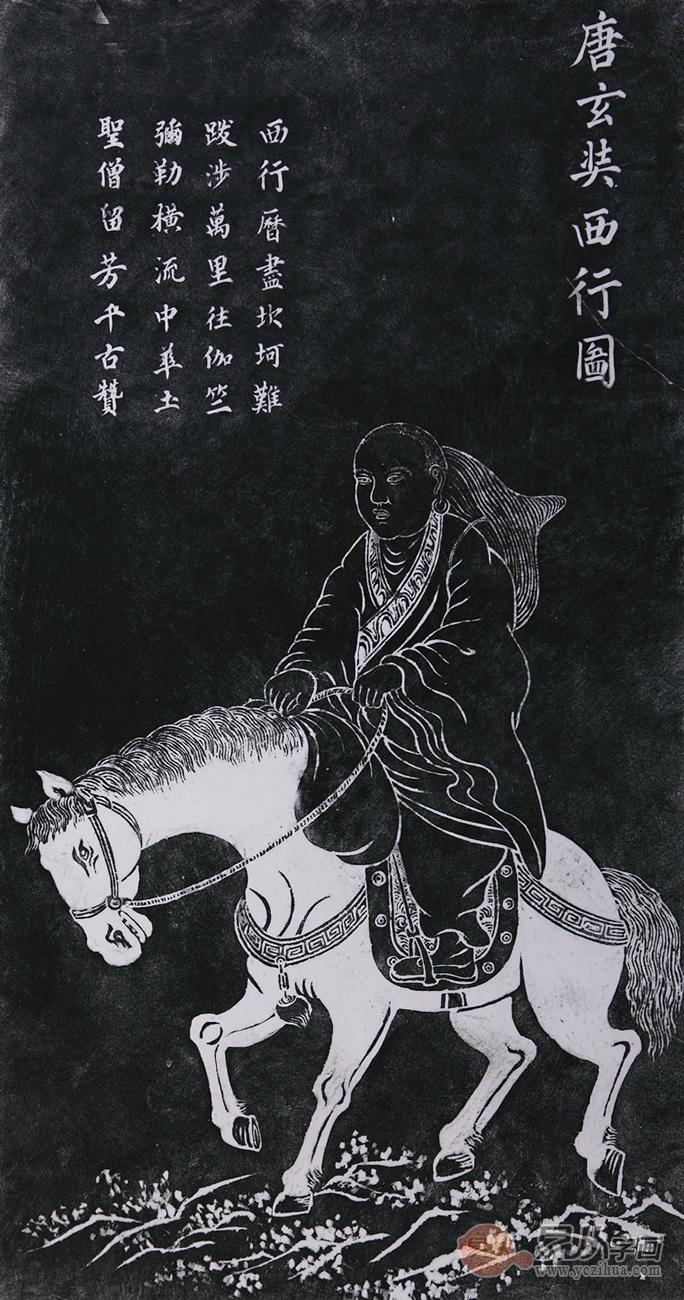 唐玄奘西行圖
西行曆盡坎坷難
跋涉萬里往伽竺
彌勒橫流中華土
聖僧留芳千古贊
易从字画
www.yczihua.com